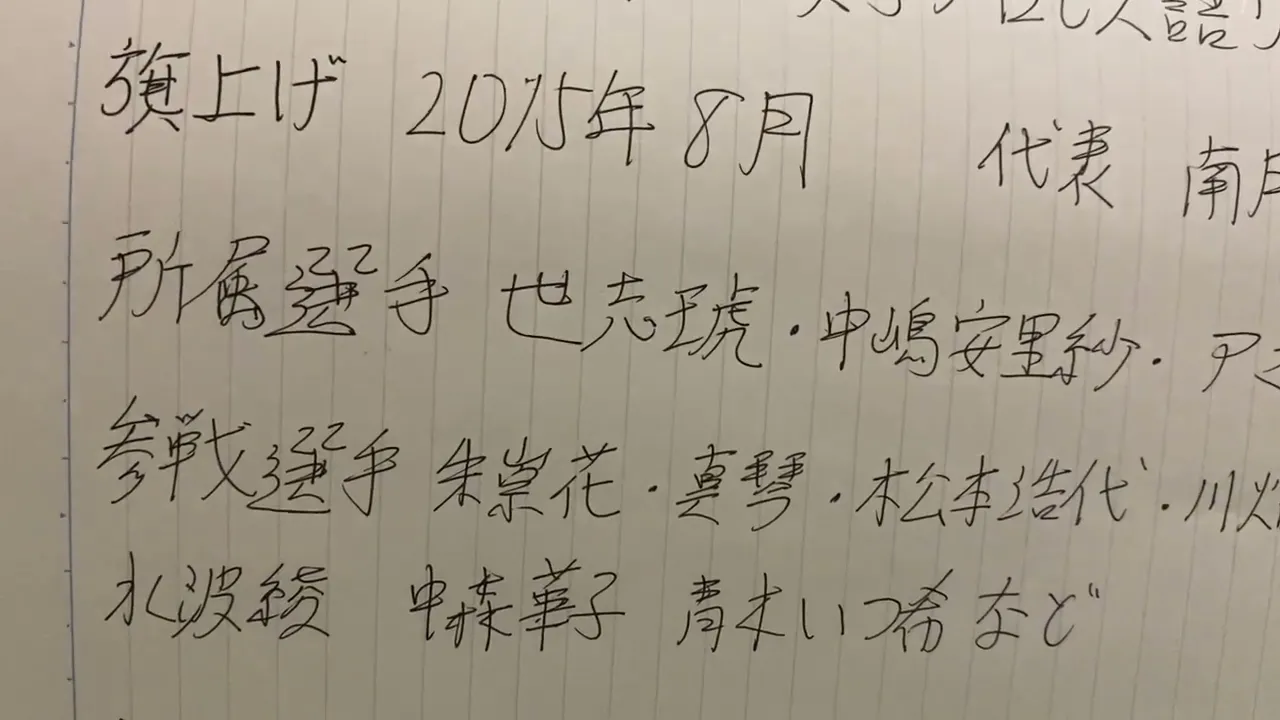 旗上げ 2015年8月 代表 南月
所属選手 世志琥・中嶋安里紗・尹
参戦選手 朱崇花・真琴・松本浩代・川畑
水波綾 中森華子 青木いつ希など